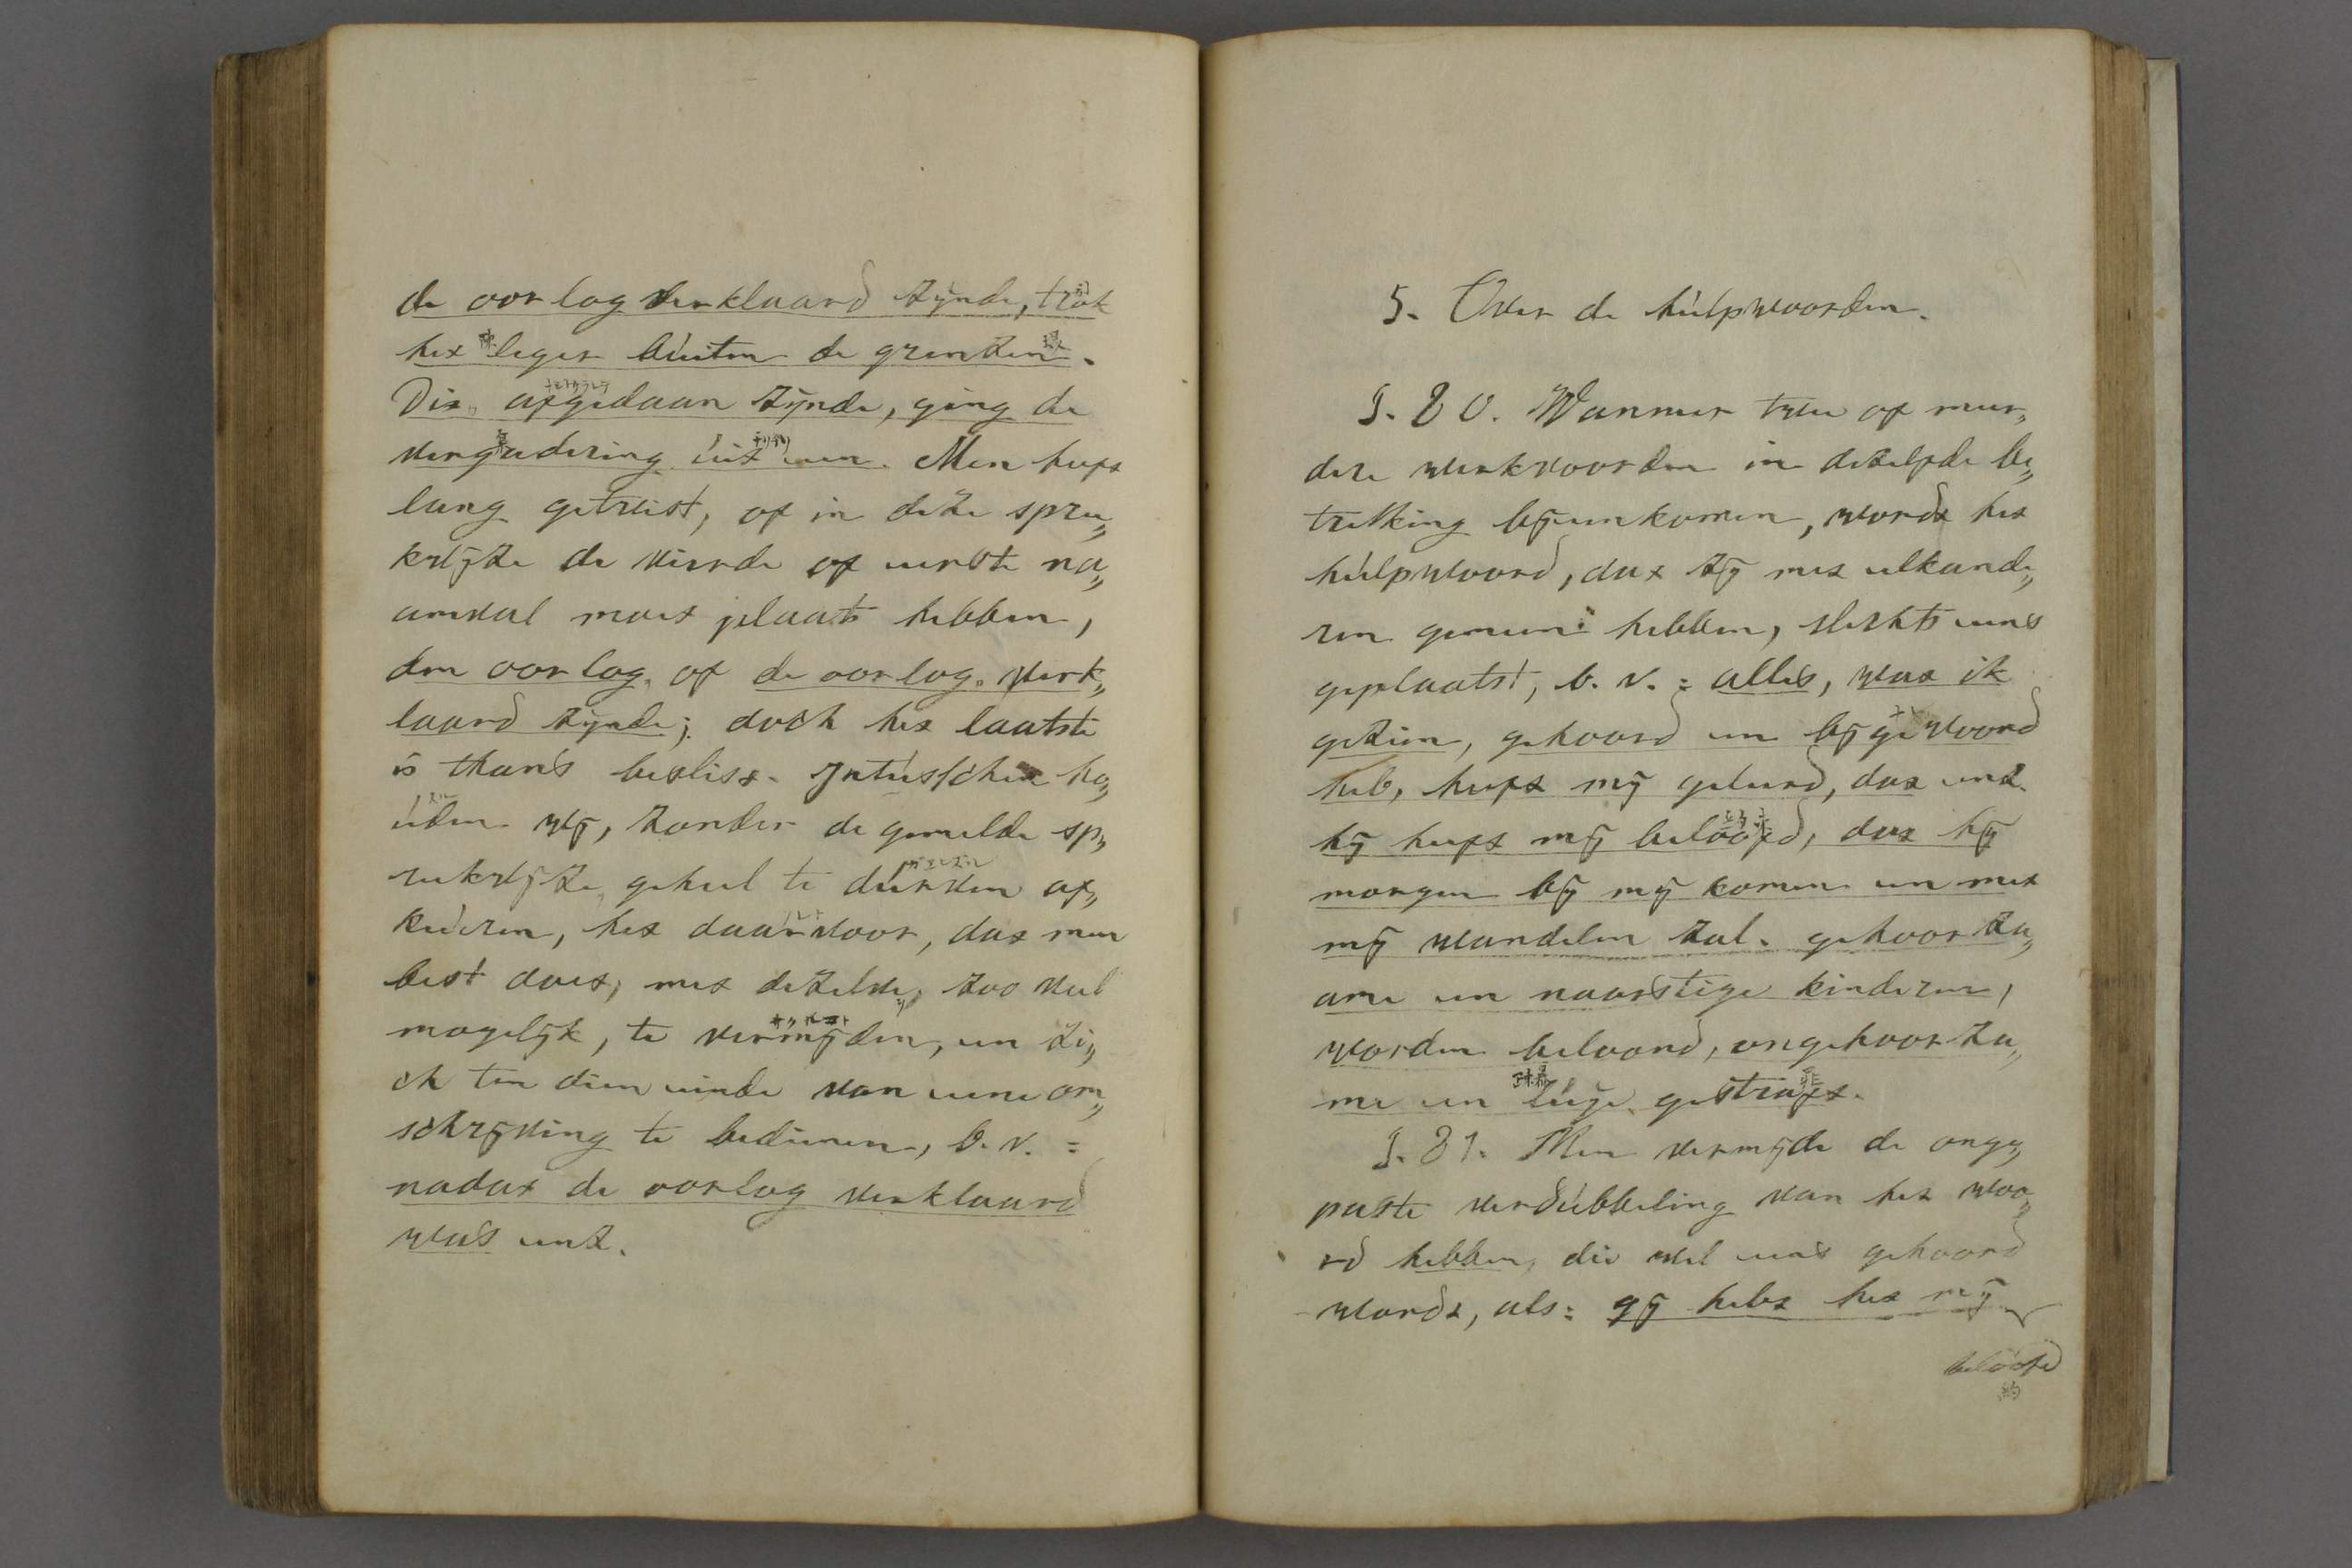 de oorlog verklaard zijnde, trok
het leger buiten de grenzen.
Dit afgedaan zijnde, ging de
vergadering uit een. Men heeft
lang getwist, of in deze spree„
kwijze de vierde of eerste na„
amval moet plaats hebben,
den oorlog of de oorlog verk„
laard zijnde; doch het laatste
is thans beslist. Intusschen ho„
uden wij, zonder de gemelde sp„
reekwijze geheel te durven af„
keuren, het daarvoor, dat men
best doet, met dezelve, zoo veel
mogelijk, te vermijden, en zi„
ch ten dien einde van eene om„
schrijving te bedienen, b. v. =
nadat de oorlog verklaard
was enz.
5. Over de hulpwoorden.
§. 80. Wanneer twee of meer„
dere werkwoorden in dezelfde be„
trekking bijeenkomen, wordt het
hulpwoord, dat zij met elkande„
ren gemeen hebben, slechts eens
geplaatst, b. v. = alles, wat ik
gezien, gehoord en bijgewoond
heb, heeft mij geleerd, dat enz.
hij heeft mij beloofd, dat hij
morgen bij mij komen en met
mij wandelen zal. gehoorza„
ame en naarstige kinderen,
worden beloond, ongehoorza„
me en luije gestraft.
§. 81. Men vermijde de onge„
paste verdubbeling van het woo„
rd hebben, die wel eens gehoord
wordt, als: gij hebt het mij
beloofd
約